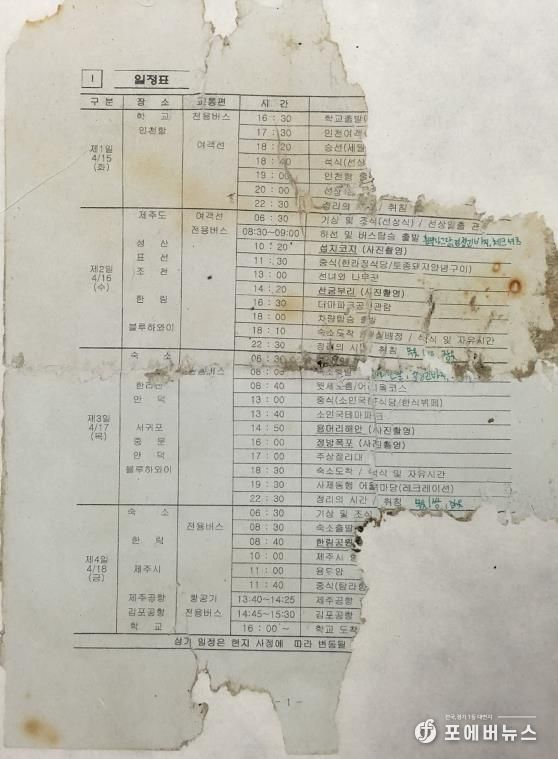 I 일정표
구 분 장 소 교통편 시 간
제1일 4/15 (화)
학 교 전용버스 16 : 30 학교출발
인천항 17 : 30 인천여객
여객선 18 : 20 승선(세월
18 : 40 석식(선상
19 : 00 인천항 출
20 : 00 선상
22 : 30 정리의 / 취침
제2일 4/16 (수)
제주도 여객선 06 : 30 기상 및 조식(선상식) / 선상일출 관
전용버스 08:30~09:00 하선 및 버스탑승 출발
성 산 10 : 20 섭지코지 (사진촬영)
표 선 11 : 30 중식(한라정식당/토종돼지양념구이)
조 천 13 : 00 선녀와 나무꾼
14 : 20 산굼부리 (사진촬영)
한 림 16 : 30 더마파크공연관람
18 : 00 차량탑승 출발
블루하와이 18 : 10 숙소도착 / 실배정 / 석식 및 자유시간
22 : 30 정리의 시 취침
제3일 4/17 (목)
숙 소 06 : 30
08 : 00 숙소출발
한라산 08 : 40 윗세오름/어 목코스
안 덕 13 : 00 중식(소인국 식당/한식뷔페)
13 : 40 소인국테마파
서귀포 14 : 50 용머리해안 (사진촬영)
중 문 16 : 00 정방폭포 (사진촬영)
안 덕 17 : 00 주상절리대
블루하와이 18 : 30 숙소도착 / 석식 및 자유시간
19 : 30 사제동행 어울 마당(레크레이션)
22 : 30 정리의 시간 / 취침
제4일 4/18 (금)
숙 소 06 : 30 기상 및 조식
전용버스 08 : 30 숙소출발
한 림 08 : 40 한림공원
10 : 00 제주시
제주시 11 : 00 용두암
11 : 40 중식(탐라
제주공항 항공기 13:40~14:25 제주공항
김포공항 전용버스 14:45~15:30 김포공항
학 교 16 : 00 ~ 학교 도착
상기 일정은 현지 사정에 따라 변동될
- 1 -
전국.경기 1등 대변지
포에버뉴스